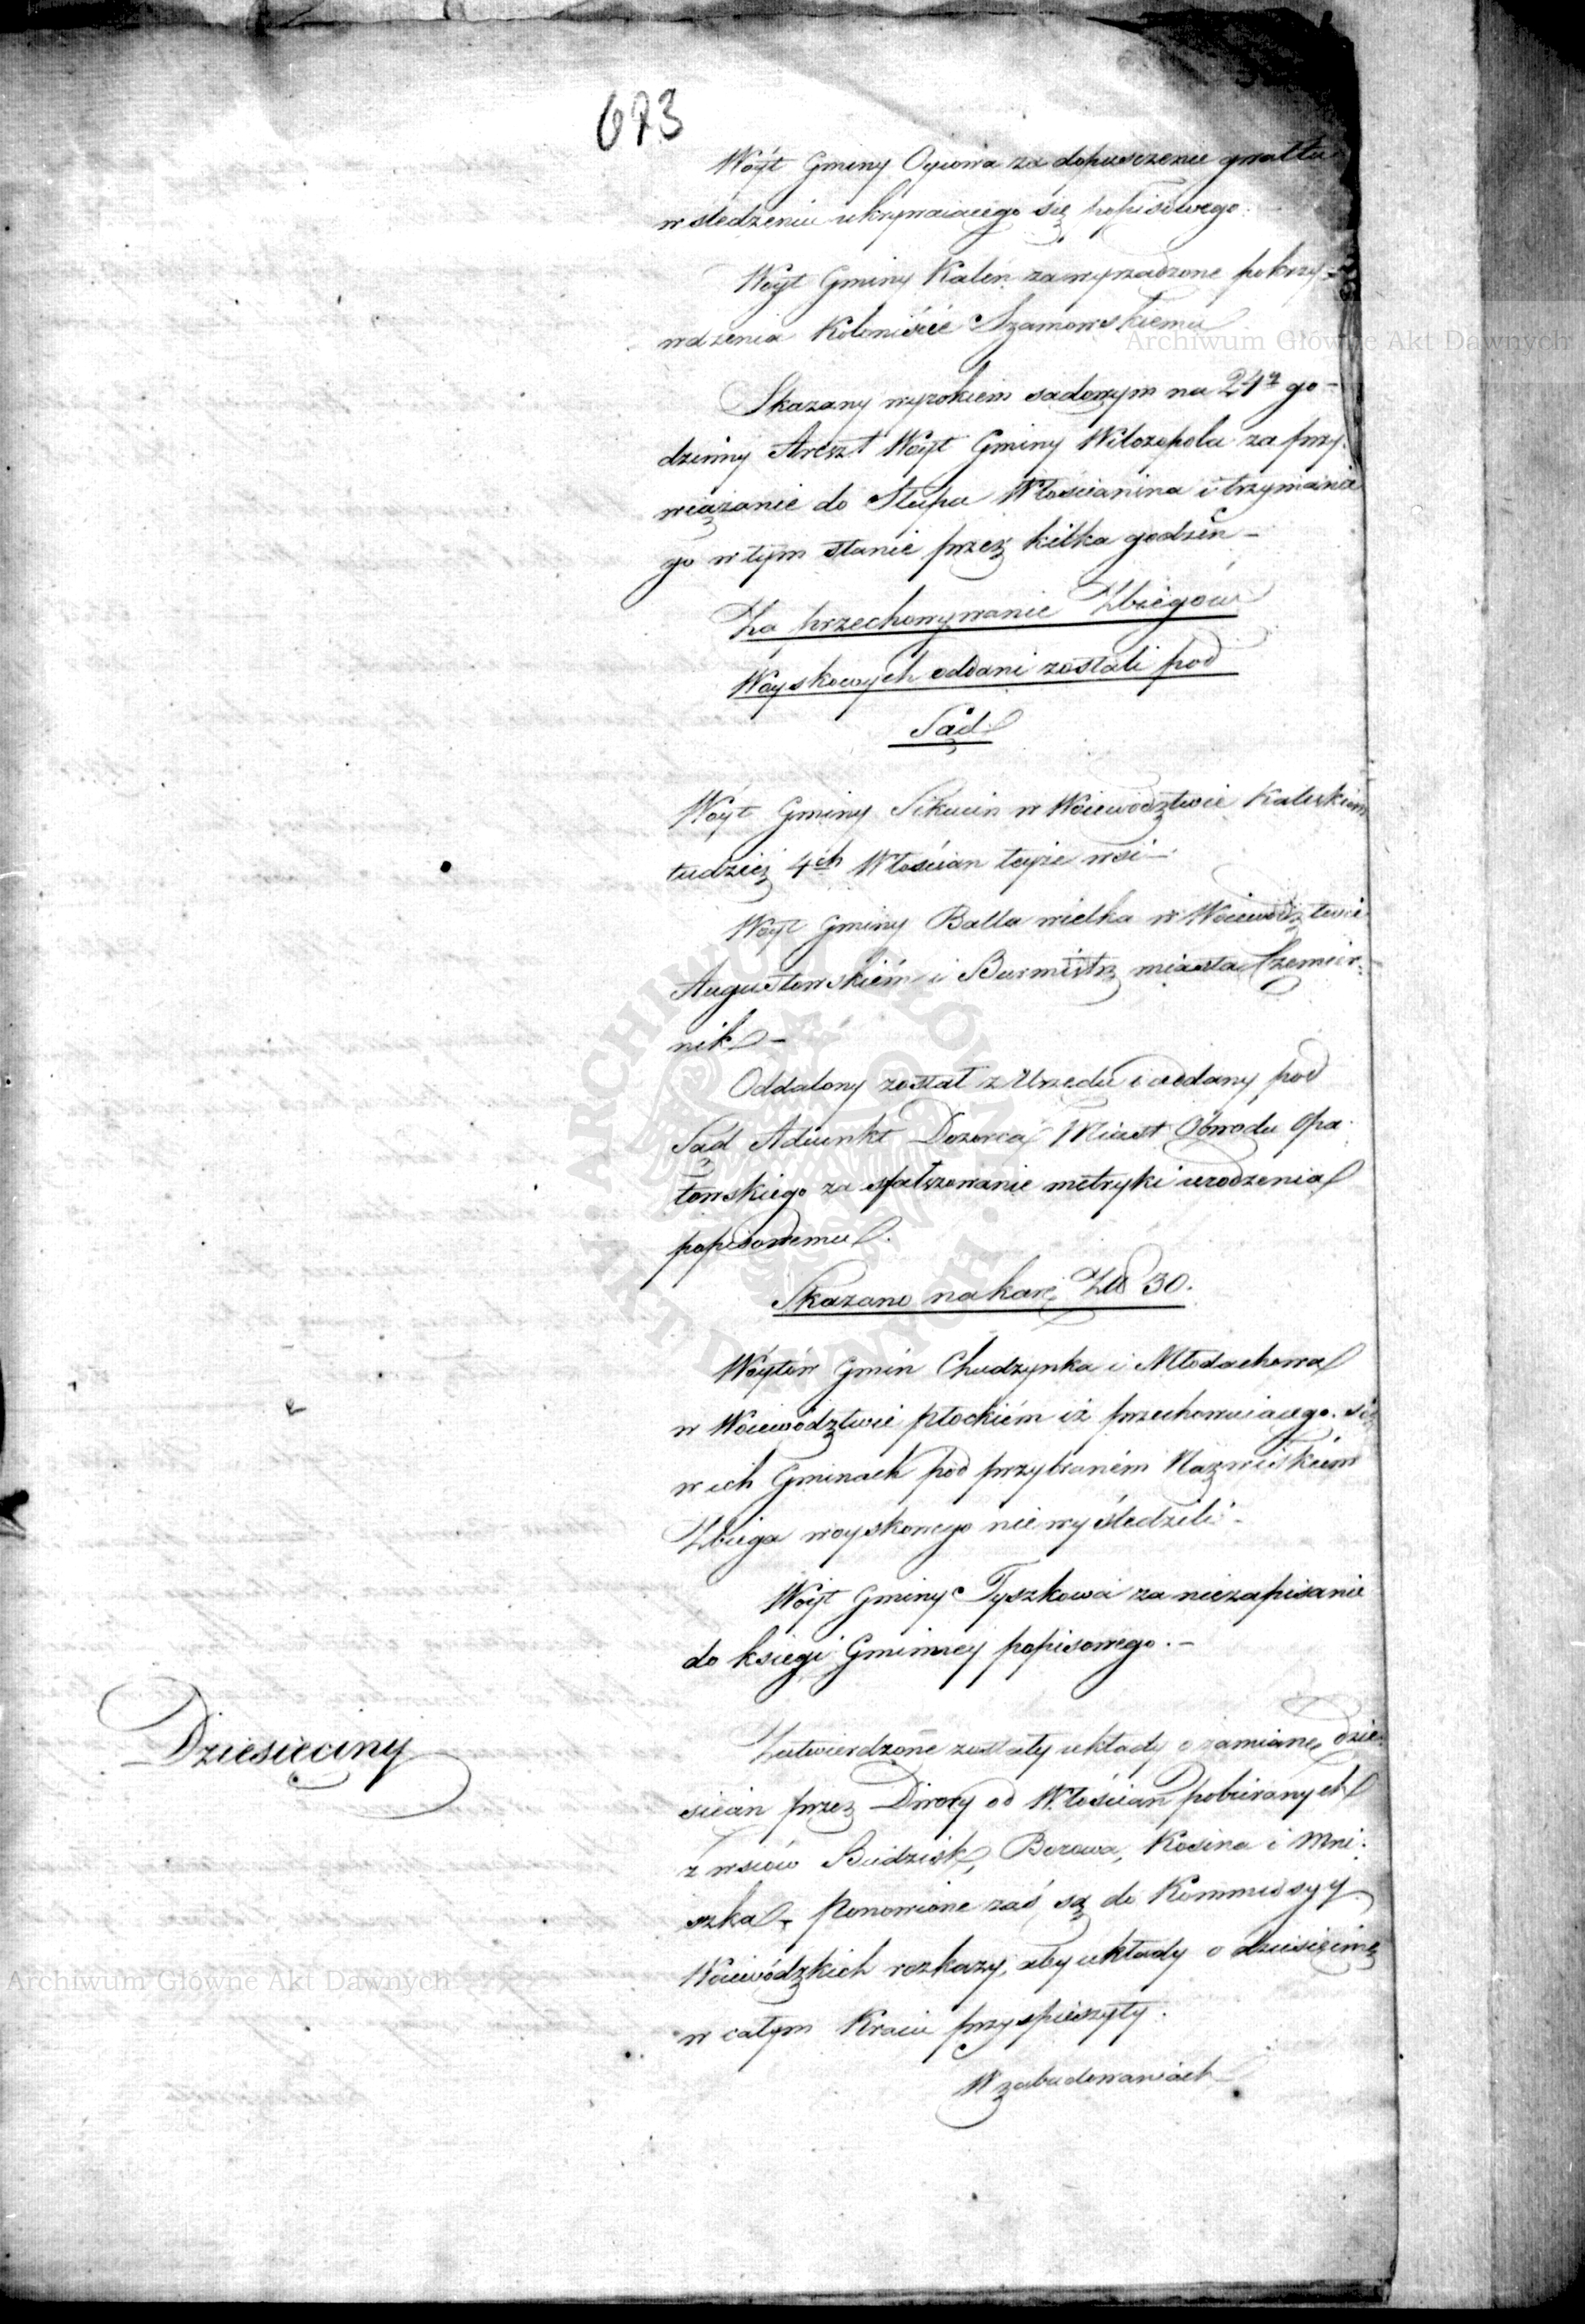 673
Wóyt Gminy Ogiowa za dopuszczenie gwałtu
w śledzeniu ukrywaiącego się popisowego.
Wóyt Gminy Kaleń za wyrządzone pokrzy-
wdzenia Koloniście Szamowskiemu
Skazany wyrokiem sądowym na 24ro go-
dzinny Areszt Wóyt Gminy Wilczopola za przy-
wiązanie do Słupa Włościanina i trzymanie
go w tym stanie przez kilka godzin –
Za przechowywanie Zbiegów
Woyskowych oddani zostali pod
Sąd
Wóyt Gminy Sikucin w Woiewództwie Kaliskiem
tudzież 4ch Włościan teyże wsi –
Wóyt Gminy Balla wielka w Woiewództwie
Augustowskiém i Burmistrz miasta Czemier-
nik –
Oddalony został z Urzędu i oddany pod
Sąd Adiunkt Dozorca Miast Obwodu Opa-
towskiego za sfałszowanie metryki urodzenia
popisowemu.
Skazano na karę Złł 30.
Wóytów Gmin Chudzynka i Młodachowa
w Woiewództwie płockiém iż przechowuiącego się
w ich Gminach pod przybraném Nazwiskiem
Zbiega woyskowego nie wyśledzili –
Wóyt Gminy Tyszkowa za niezapisanie
do księgi Gminney popisowego. –
Dziesięciny
Zatwierdzone zostały układy o zamianę dzie-
sięcin przez Dwory od Włościan pobieranych
z wsiów Budzisk, Borowa, Kosina i Mni-
szka – Ponowione zaś są do Kommissyy
Woiewódzkich rozkazy, aby układy o dziesięcinę
w całym Kraiu przyspieszyły.
W zabudowaniach
Archiwum Główne Akt Dawnych
Archiwum Główne Akt Dawnych
ARCHIWUM GŁÓWNE AKT DAWNYCH